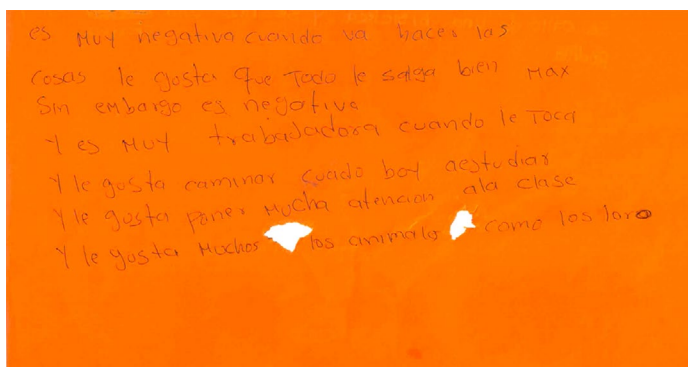 es muy negativa cuando va hacer las
cosas le gosta que Todo le salga bien Max
Sin embargo es negativa
Y es muy trabajadora cuando le Toca
Y le gusta caminar cuado boy aestudiar
Y le gusta poner mucha atencion ala clase
Y le gusta Muchos los animals como los loro